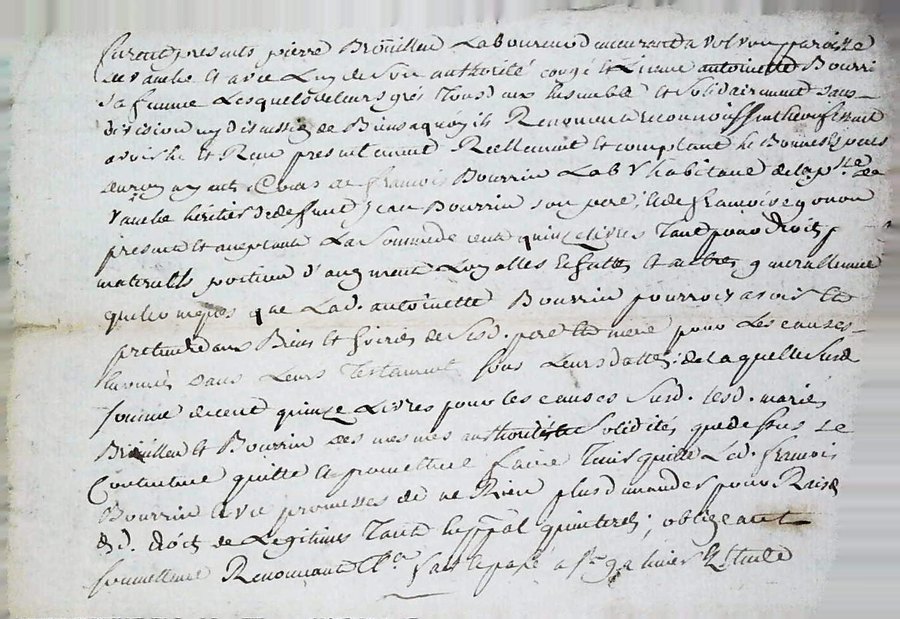 furent presents pierre Broüillen Laboureur demeurant a volvon paroisse
de vauche et avec Luy de son authorité congé et Licence antoinette Bourri
sa femme Lesquels de leurs grés tous deux Ensemble et Solidairement sans
division ny discussion de Biens a quoy ils Renoncent Reconnoissent
avoir heu et Receu presentement Reellement et comptant En Bonnes Especes
ayant Cours de françois Bourrin Lab.r habitant de la p.sse de
vauche heritier de deffunt Jean Bourrin son pere, et de françoise gonon
present et acceptant La Somme de cent quinze Livres tant pour droits
maternels portion d'augment Loyalles Echutes et autres generallement
quelconques que Lad. antoinette Bourrin pourroit avoir et
pretendre aux Biens et hoiries de Sesd. pere et mere pour Les causes
Enoncées dans Leurs Testament sous Leurs dattes; de laquelle Susd.
somme de cent quinze Livres pour les causes Susd. Lesd. mariés
Broüillen et Bourrin des mesmes authorité et Solidités que dessus Se
Contentent quittent et promettent faire Tenir quitte Led. françois
Bourrin avec promesses de ne Rien plus demander pour Raison
desd. droits de Legitimes Tant En ppāl qu'interets; obligeant
soumettant Renonceant &a fait et passé a